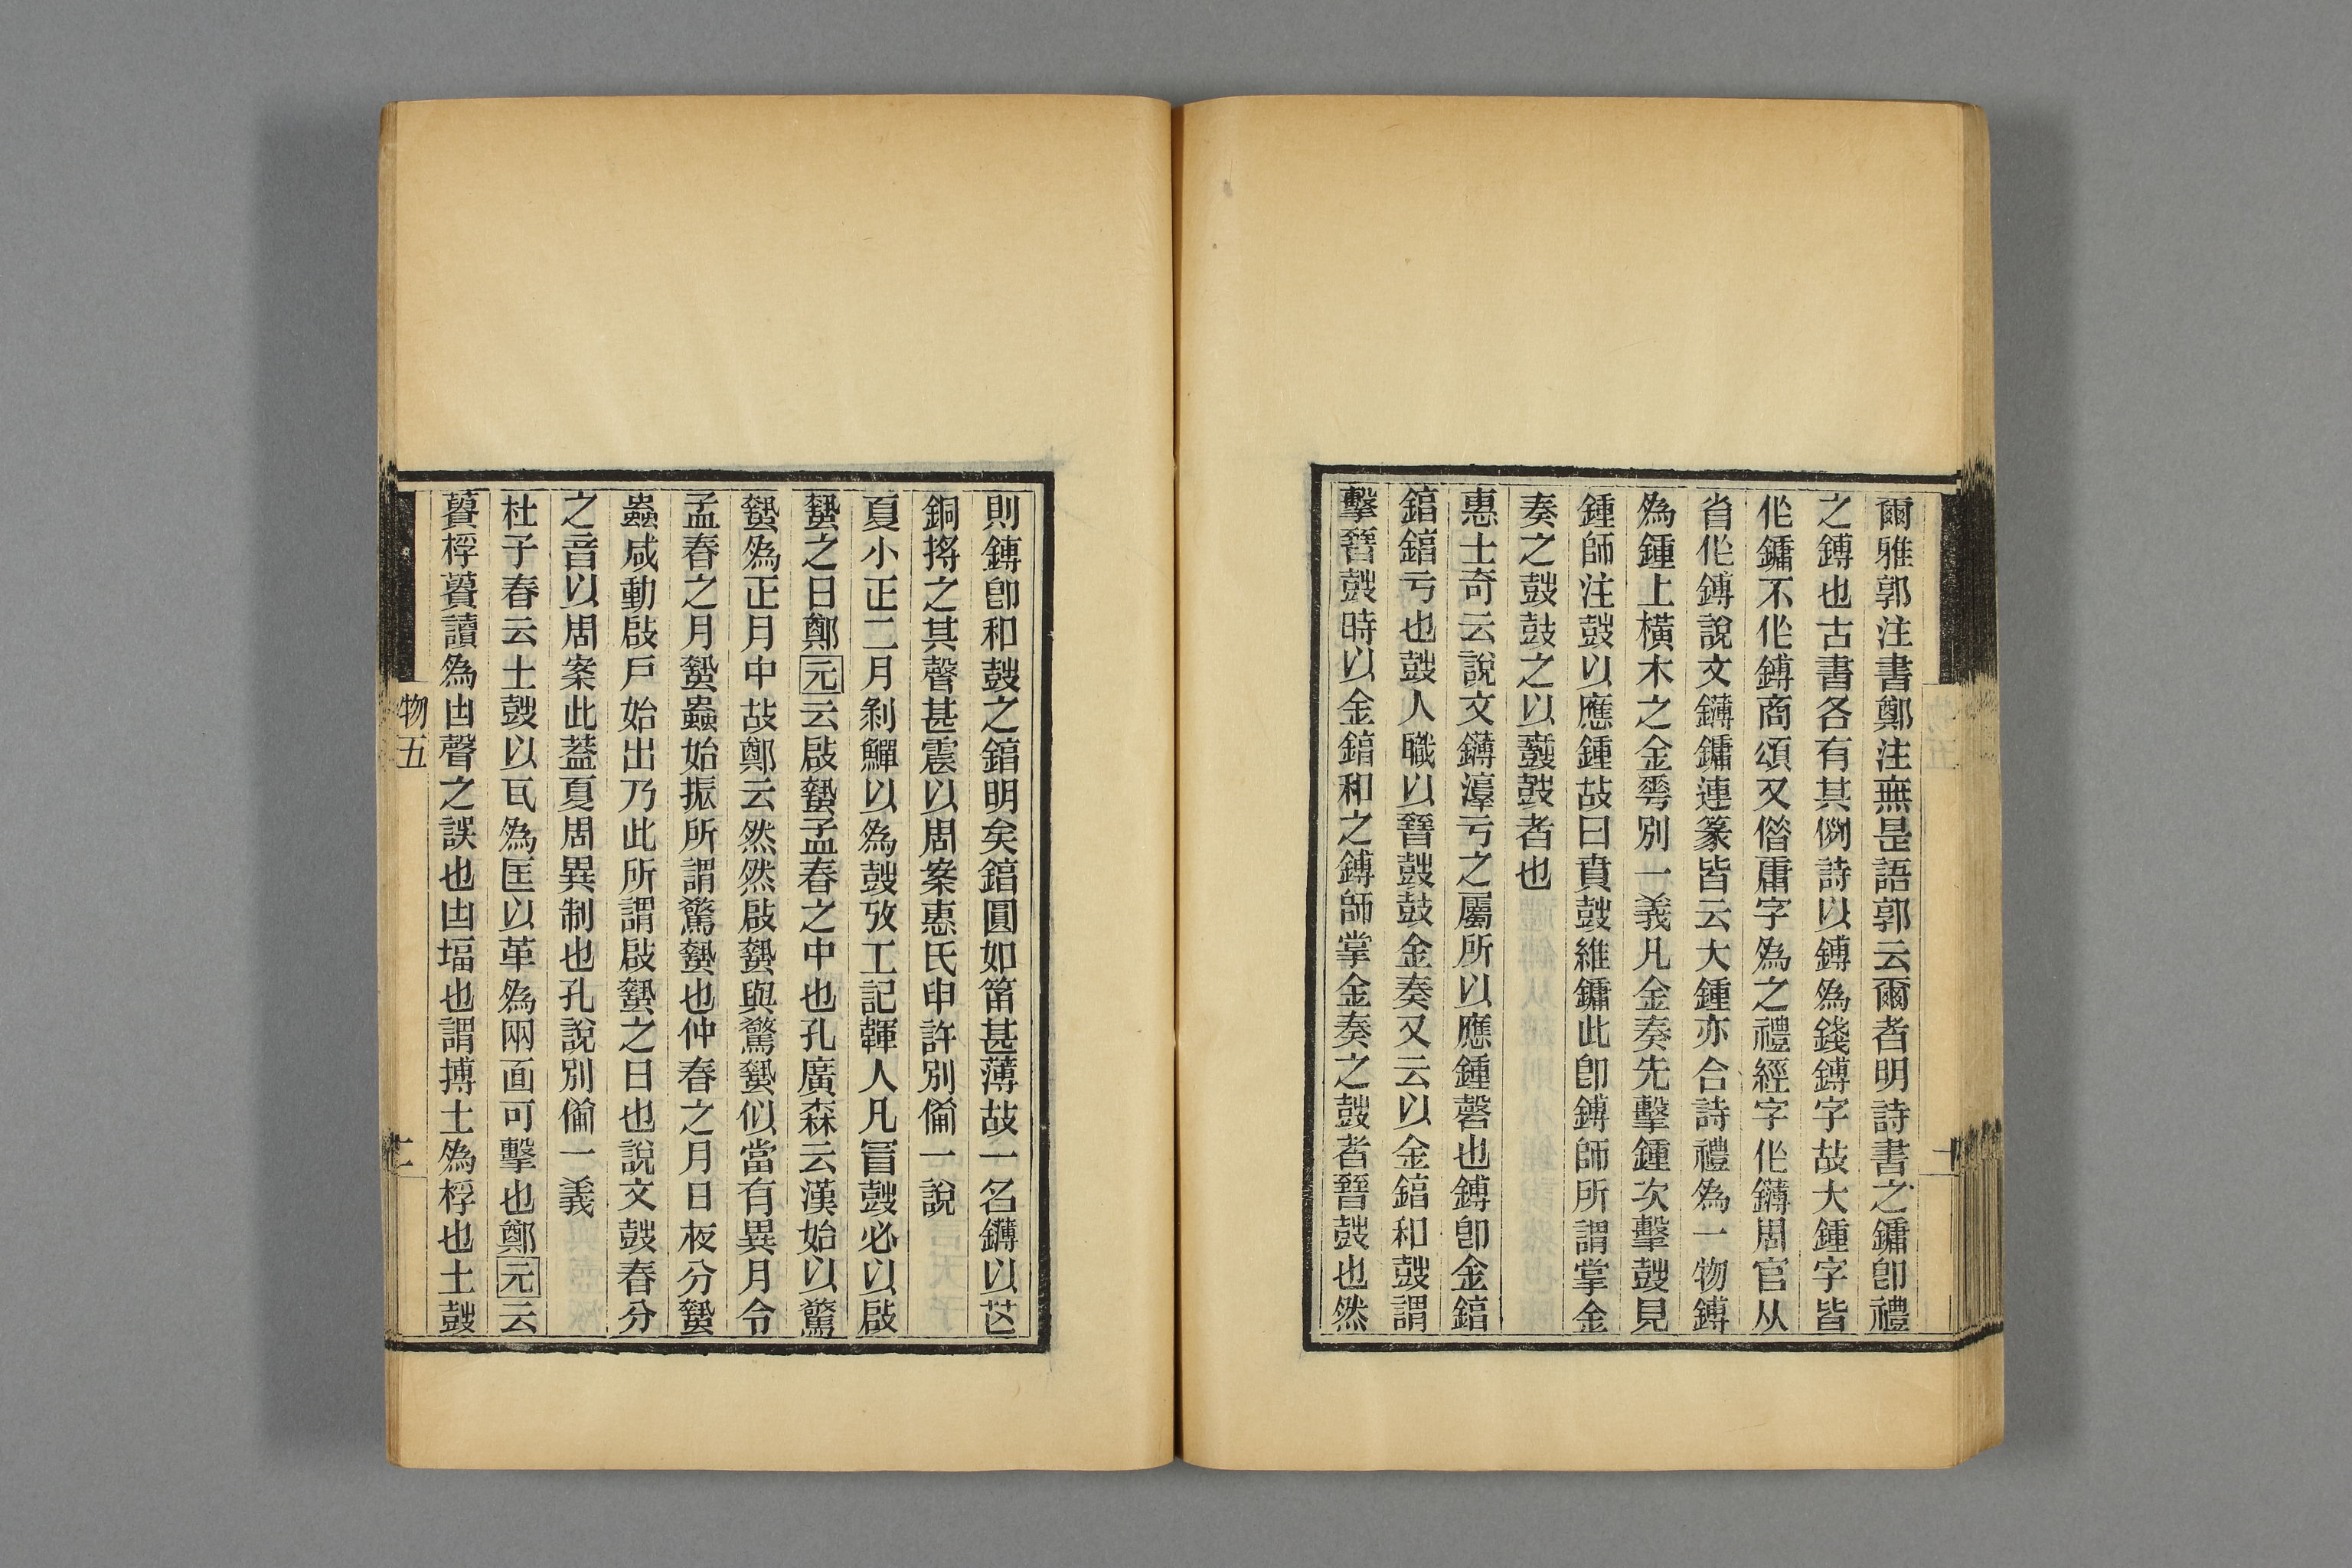 爾雅郭注書鄭注無是語郭云爾者明詩書之鏞卽禮
之鎛也古書各有其例詩以鎛爲錢鎛字故大鍾字皆
作鏞不作鎛商頌又僭庸字爲之禮經字作鑮周官从
省作鎛說文鑮鏞連篆皆云大鍾亦合詩禮爲一物鎛
爲鍾上橫木之金䔢別一義凡金奏先擊鍾次擊鼓見
鍾師注鼓以應鍾故曰賁鼓維鏞此卽鎛師所謂掌金
奏之鼓鼓之以鼖鼓者也
惠士奇云說文鑮淳亏之屬所以應鍾磬也鎛卽金錞
錞錞亏也鼓人職以晉鼓鼓金奏又云以金錞和鼓謂
擊晉鼓時以金錞和之鎛師掌金奏之鼓者晉鼓也然
則鎛卽和鼓之錞明矣錞圓如筩甚薄故一名鑮以芒
銅捋之其聲甚震以周案惠氏申許別備一說
夏小正二月剝鱓以爲鼓攷工記韗人凡冒鼓必以啟
蟄之日鄭元云啟蟄孟春之中也孔廣森云漢始以驚
蟄爲正月中故鄭云然然啟蟄與驚蟄似當有異月令
孟春之月蟄蟲始振所謂驚蟄也仲春之月日夜分蟄
蟲咸動啟戶始出乃此所謂啟蟄之日也說文鼓春分
之音以周案此蓋夏周異制也孔說別備一義
杜子春云土鼓以瓦爲匡以革爲兩面可擊也鄭元云
蕢桴蕢讀爲凷聲之誤也凷堛也謂摶土爲桴也土鼓
物五
二